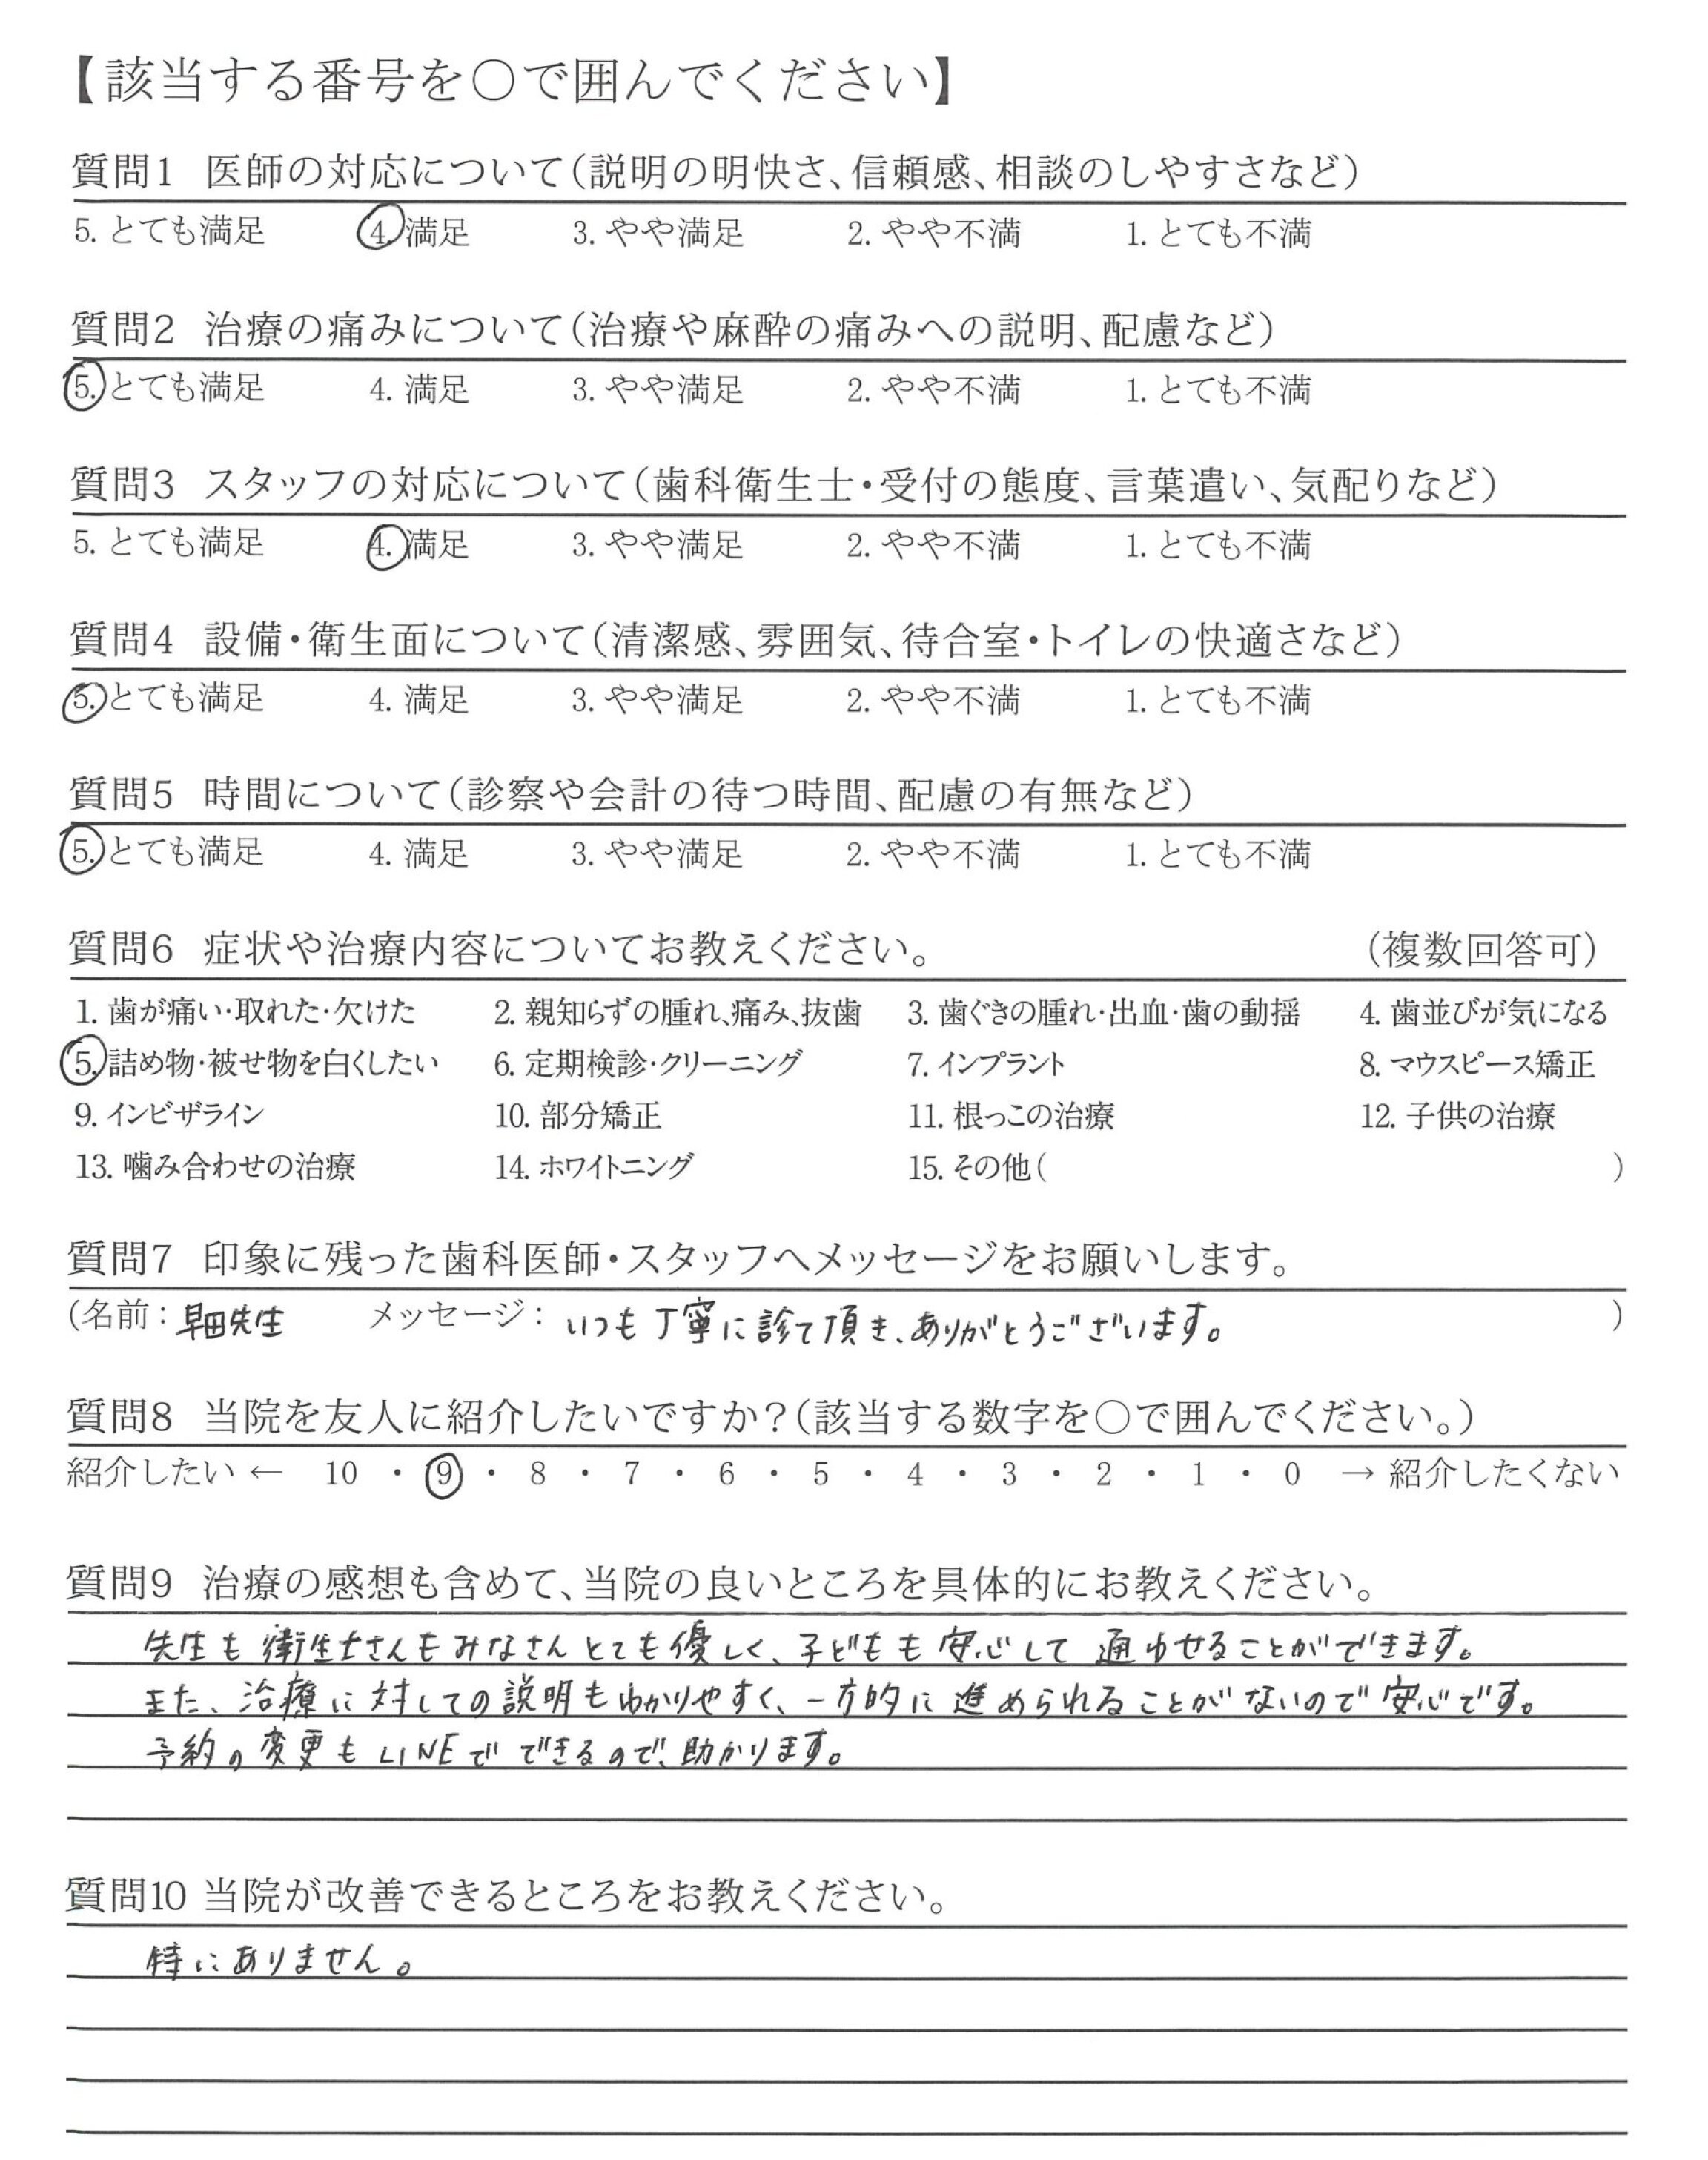 【該当する番号を〇で囲んでください】
質問1 医師の対応について(説明の明快さ、信頼感、相談のしやすさなど)
5. とても満足 4. 満足 3. やや満足 2. やや不満 1. とても不満
質問2 治療の痛みについて(治療や麻酔の痛みへの説明、配慮など)
5. とても満足 4. 満足 3. やや満足 2. やや不満 1. とても不満
質問3 スタッフの対応について(歯科衛生士・受付の態度、言葉遣い、気配りなど)
5. とても満足 4. 満足 3. やや満足 2. やや不満 1. とても不満
質問4 設備・衛生面について(清潔感、雰囲気、待合室・トイレの快適さなど)
5. とても満足 4. 満足 3. やや満足 2. やや不満 1. とても不満
質問5 時間について(診察や会計の待つ時間、配慮の有無など)
5. とても満足 4. 満足 3. やや満足 2. やや不満 1. とても不満
質問6 症状や治療内容についてお教えください。 (複数回答可)
1. 歯が痛い・取れた・欠けた 2. 親知らずの腫れ、痛み、抜歯 3. 歯ぐきの腫れ・出血・歯の動揺 4. 歯並びが気になる
5. 詰め物・被せ物を白くしたい 6. 定期検診・クリーニング 7. インプラント 8. マウスピース矯正
9. インビザライン 10. 部分矯正 11. 根っこの治療 12. 子供の治療
13. 噛み合わせの治療 14. ホワイトニング 15. その他( )
質問7 印象に残った歯科医師・スタッフへメッセージをお願いします。
(名前:早田先生 メッセージ:いつも丁寧に診て頂き、ありがとうございます。 )
質問8 当院を友人に紹介したいですか?(該当する数字を〇で囲んでください。)
紹介したい ← 10 ・ 9 ・ 8 ・ 7 ・ 6 ・ 5 ・ 4 ・ 3 ・ 2 ・ 1 ・ 0 → 紹介したくない
質問9 治療の感想も含めて、当院の良いところを具体的にお教えください。
先生も衛生士さんもみなさんとても優しく、子どもも安心して通わせることができます。
また、治療に対しての説明もわかりやすく、一方的に進められることがないので安心です。
予約の変更もLINEでできるので、助かります。
質問10 当院が改善できるところをお教えください。
特にありません。